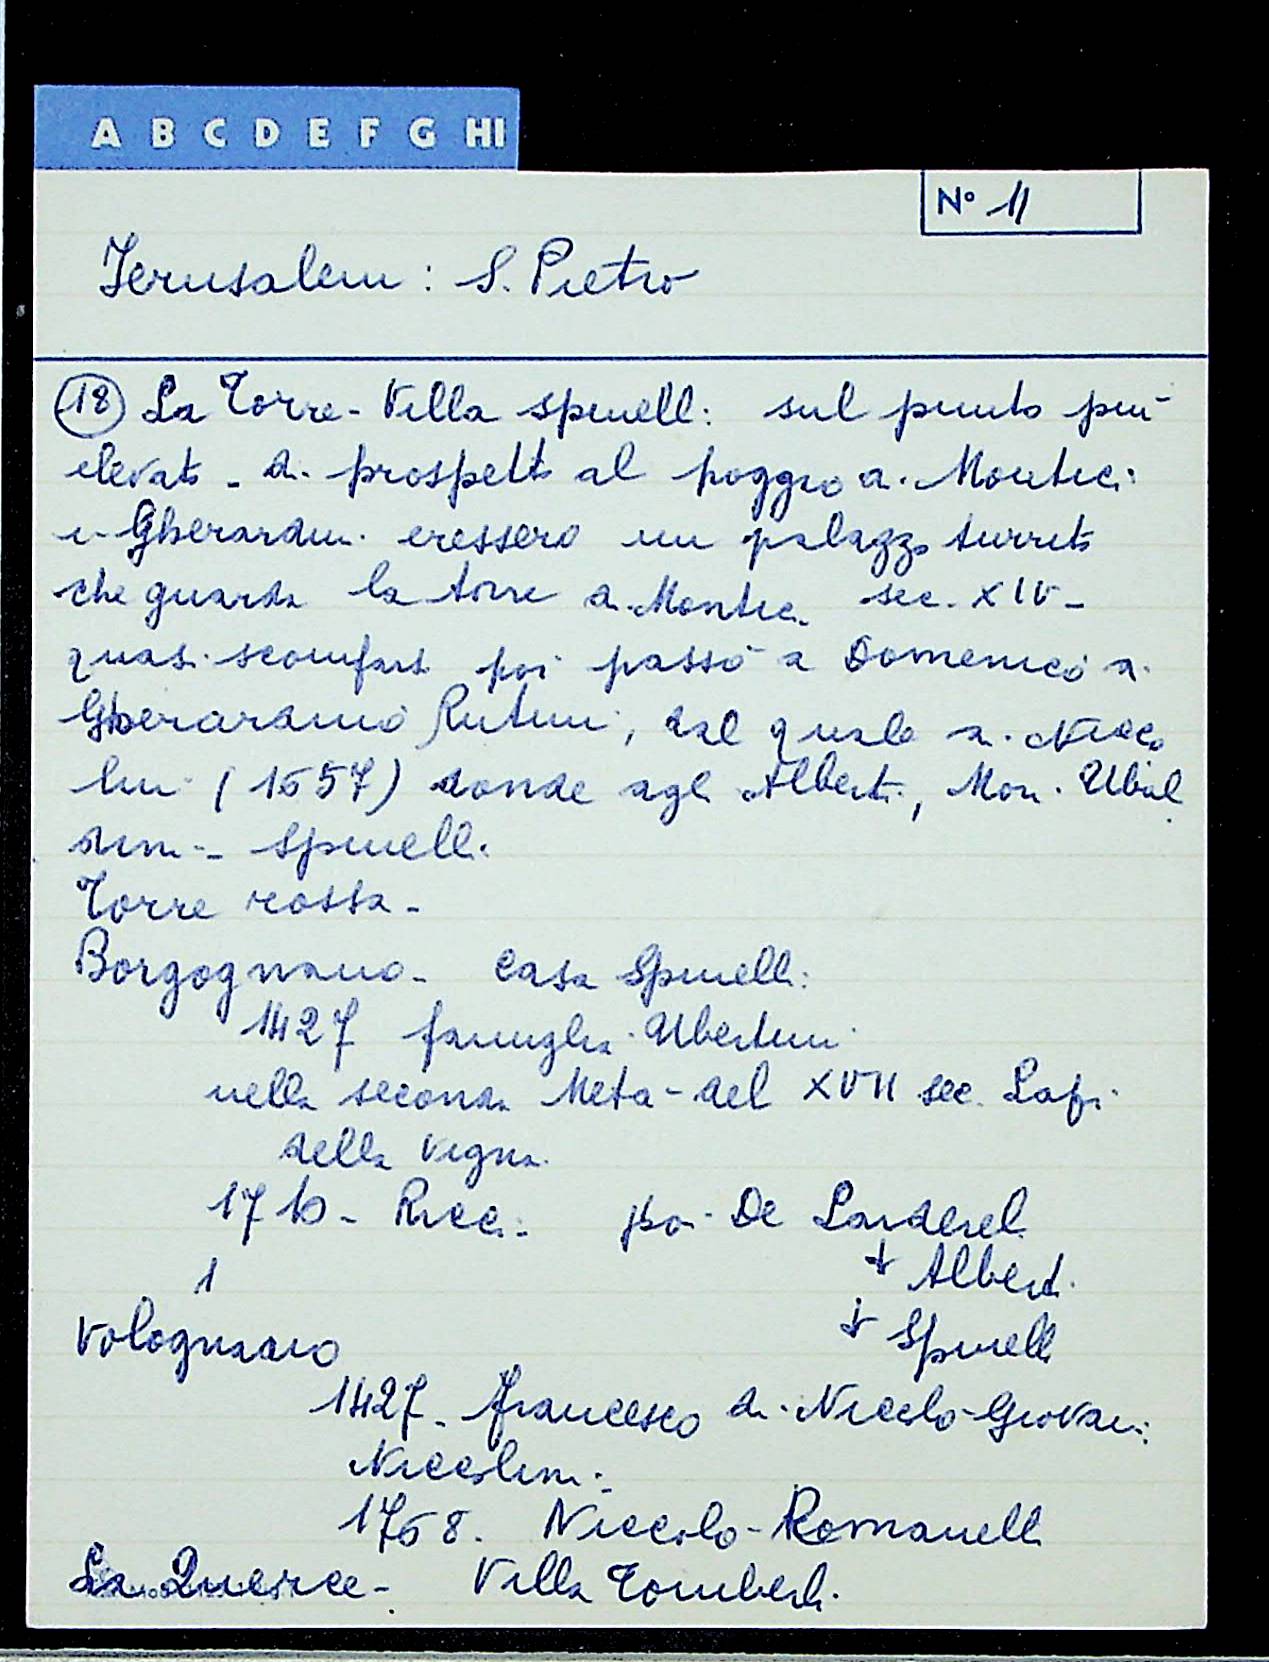 A B C D E F G HI
Nº 11
Jerusalem: S. Pietro
18 La Torre - Villa Spinelli: sul punto più
elevato - di prospetto al poggio a. Montici
i Gherardini eressero un palazzo turrito
che guarda la torre a Montici sec. XIV -
quasi scomparsi poi passò a Domenico di
Gherardino Rutini, dal quale ai Nicco
lini (1657) donde agli Alberti, Mori Ubal
dini - Spinelli.
Torre rossa -
Borgognano - Casa Spinelli:
1427 famiglia Ubertini
nella seconda Metà del XVII sec. Lapi
della Vigna
1710 - Ricci. poi De Larderel
1 ↓ Alberti
↓ Spinelli
Volognano
1427 - Francesco di Niccolo Giovani
Niccolini.
1768. Niccolo Romanelli
La Querce - Villa Tomberli.